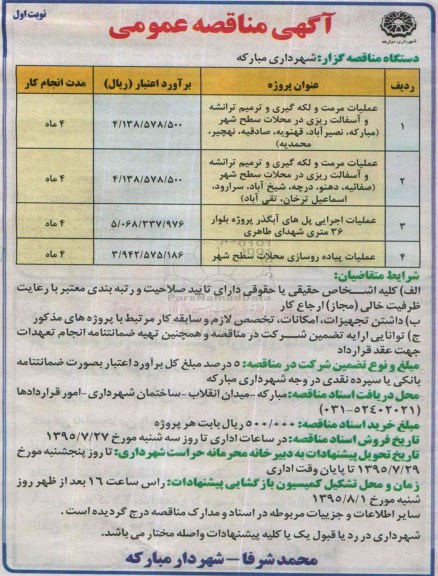 نوبت اول
آگهی مناقصه عمومی
شهرداری مبارکه
دستگاه مناقصه گزار: شهرداری مبارکه
ردیف
عنوان پروژه
برآورد اعتبار (ریال)
مدت انجام کار
۱
عملیات مرمت و لکه گیری و ترمیم ترانشه
و آسفالت ریزی در محلات سطح شهر
(مبارکه، نصیرآباد، قهنویه، صادقیه، نهچیر،
محمدیه)
۴/۱۳۸/۵۷۸/۵۰۰
۴ ماه
۲
عملیات مرمت و لکه گیری و ترمیم ترانشه
و آسفالت ریزی در محلات سطح شهر
(صفائیه، دهنو، درچه، شیخ آباد، سرارود،
اسماعیل ترخان، تقی آباد)
۴/۱۳۸/۵۷۸/۵۰۰
۴ ماه
۳
عملیات اجرایی پل های آبگذر پروژه بلوار
۳۶ متری شهدای طاهری
۵/۰۶۸/۳۳۷/۹۷۶
۴ ماه
۴
عملیات پیاده روسازی محلات سطح شهر
۳/۹۴۲/۵۷۵/۱۸۶
۴ ماه
شرایط متقاضیان:
الف) کلیه اشخاص حقیقی یا حقوقی دارای تایید صلاحیت و رتبه بندی معتبر با رعایت
ظرفیت خالی (مجاز) ارجاع کار
ب) داشتن تجهیزات، امکانات، تخصص لازم و سابقه کار مرتبط با پروژه های مذکور
ج) توانایی ارایه تضمین شرکت در مناقصه و همچنین تهیه ضمانتنامه انجام تعهدات
جهت عقد قرارداد
مبلغ و نوع تضمین شرکت در مناقصه: ۵ درصد مبلغ کل برآورد اعتبار بصورت ضمانتنامه
بانکی یا سپرده نقدی در وجه شهرداری مبارکه
محل دریافت اسناد مناقصه: مبارکه - میدان انقلاب - ساختمان شهرداری - امور قراردادها
(۰۳۱-۵۲۴۰۲۰۲۱)
مبلغ خرید اسناد مناقصه: ۵۰۰/۰۰۰ ریال بابت هر پروژه
تاریخ فروش اسناد مناقصه: در ساعات اداری تا روز سه شنبه مورخ ۱۳۹۵/۷/۲۷
تاریخ تحویل پیشنهادات به دبیرخانه محرمانه حراست شهرداری: تا روز پنجشنبه مورخ
۱۳۹۵/۷/۲۹ تا پایان وقت اداری
زمان و محل تشکیل کمیسیون بازگشایی پیشنهادات: راس ساعت ۱۶ بعد از ظهر روز
شنبه مورخ ۱۳۹۵/۸/۱
سایر اطلاعات و جزییات مربوطه در اسناد و مدارک مناقصه درج گردیده است.
شهرداری در رد یا قبول یک یا کلیه پیشنهادات واصله مختار می باشد.
محمد شرفا - شهردار مبارکه
ParsNamadData